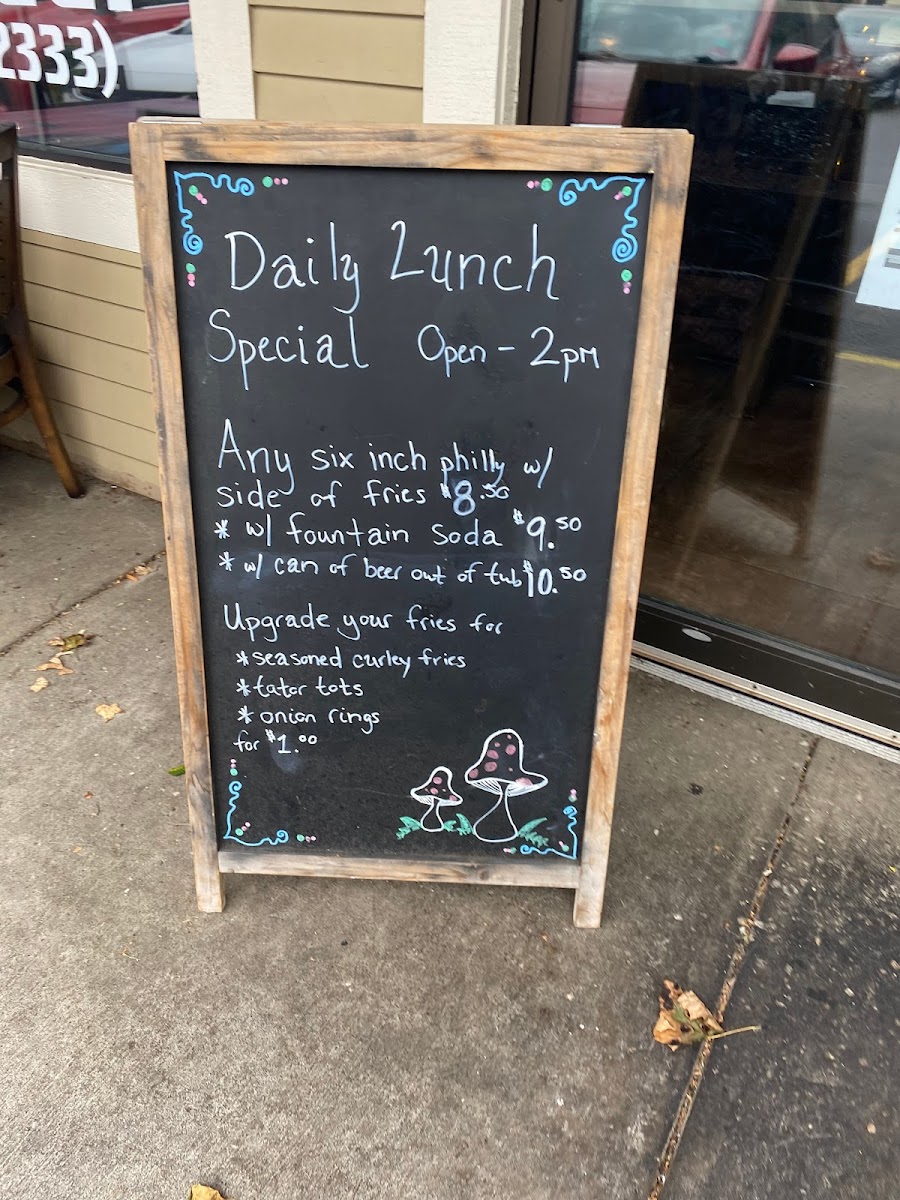 2333)
Daily Lunch
Special Open - 2pm
Any six inch philly w/
side of fries $8.50
* w/ fountain soda $9.50
* w/ can of beer out of tub $10.50
Upgrade your fries for
* seasoned curley fries
* tator tots
* onion rings
for $1.00